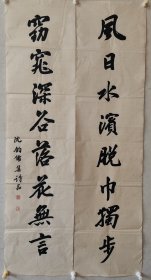 風日水濱脫巾獨步
窈窕深谷落花無言
沈鈞儒集詩品